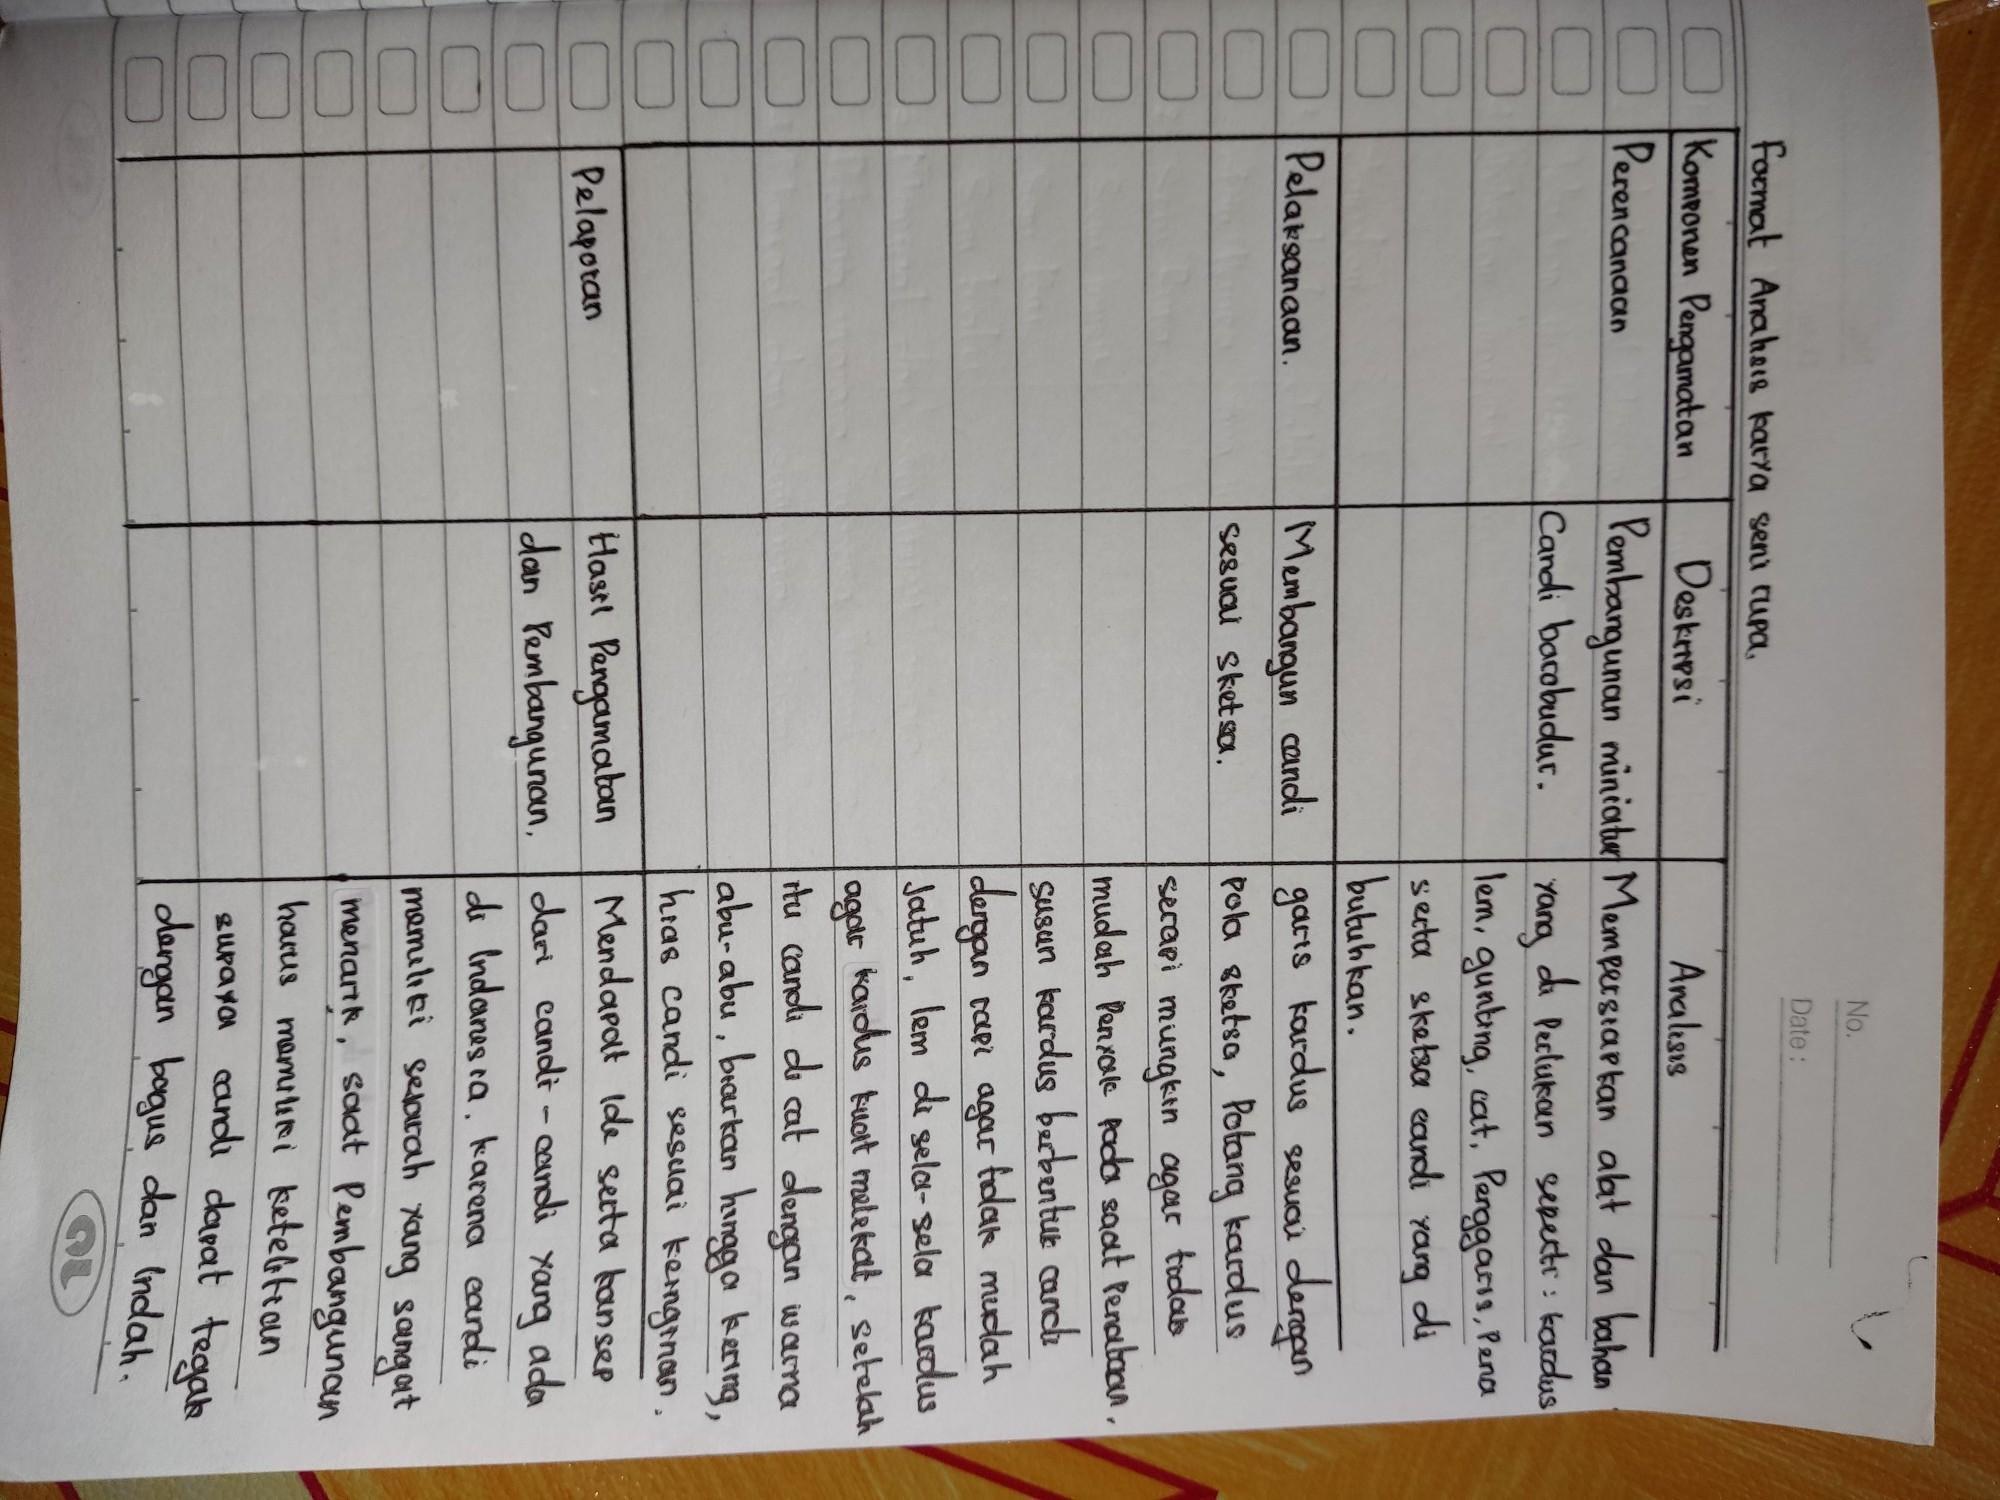 No.
Date:
Format Analisis karya seni rupa.
Komponen Pengamatan
Deskripsi
Analisis
Perencanaan
Pembangunan miniatur
Candi borobudur.
Mempersiapkan alat dan bahan
yang di perlukan seperti : kardus
lem, gunting, cat, Penggaris, Pena
serta sketsa candi yang di
butuhkan.
Pelaksanaan.
Membangun candi
sesuai sketsa.
garis kardus sesuai dengan
pola sketsa, Potong kardus
serapi mungkin agar tidak
mudah Penyok pada saat Penataan,
susun kardus berbentuk candi
dengan rapi agar tidak mudah
Jatuh, lem di sela-sela kardus
agar kardus kuat melekat, setelah
itu candi di cat dengan warna
abu-abu, biarkan hingga kering,
hias candi sesuai keinginan.
Pelaporan
Hasil Pengamatan
dan Pembangunan.
Mendapat Ide serta konsep
dari candi-candi yang ada
di Indonesia. karena candi
memiliki sejarah yang sangat
menarik, saat Pembangunan
harus memiliki ketelitian
supaya candi dapat tegak
dengan bagus dan Indah.